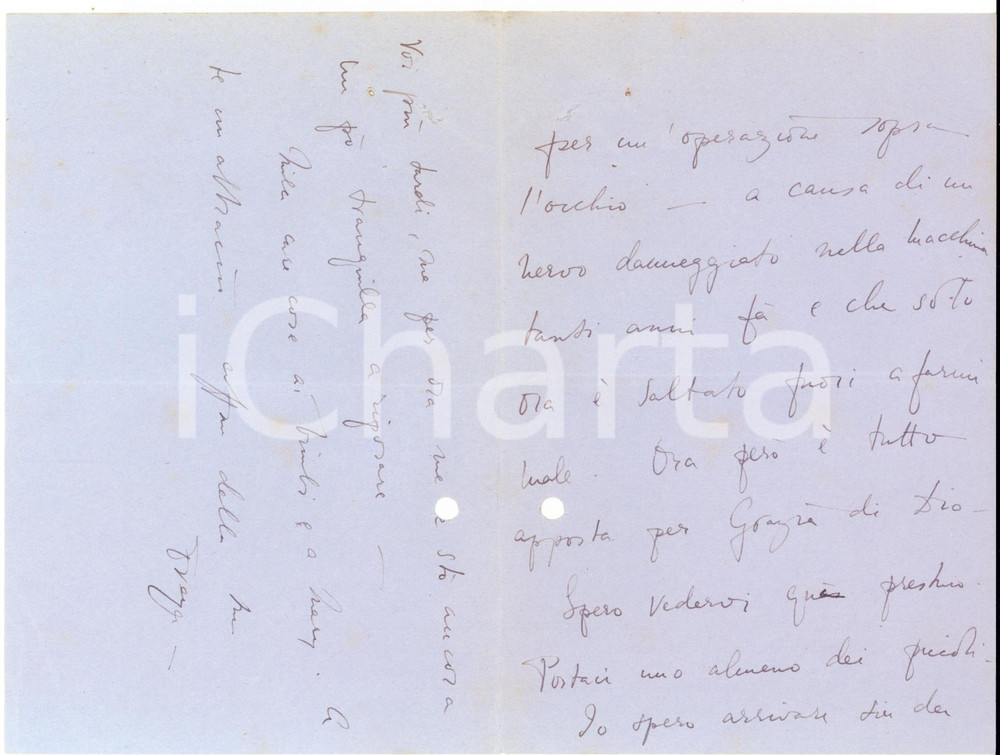 per un'operazione sopra
l'occhio — a causa di un
nervo danneggiato nella macchina
tanti anni fà e che sotto
ora è saltato fuori a farmi
male. Ora però è tutto
apposta per Grazia di Dio —
Spero vedervi quà prestino.
Portaci uno almeno dei piccoli —
Io spero arrivare sin da
Voi più tardi, ma per ora me ne stò ancora
un pò tranquilla a riposare —
Mila care cose ai bimbi e a Mary. A
te un abbraccio aff.mo della tua
iCharta